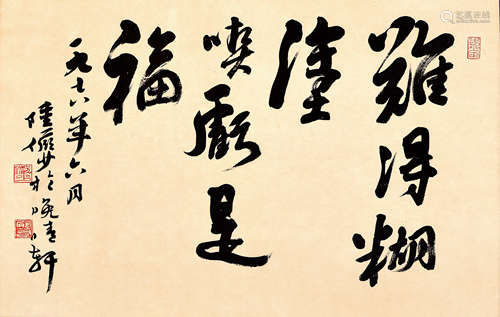 難得糊
塗
喫虧是
福
一九七八年六月
陸儼少於晚晴軒